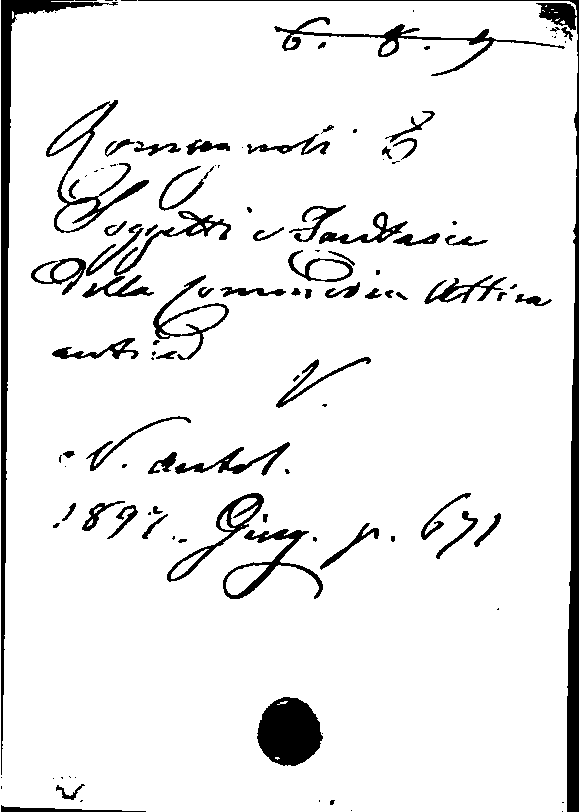 6. 8. 9
Romagnoli E
Soggetti e Fantasie
della Commedia Attica
antica
V.
N. Antol.
1897. Giug. p. 671